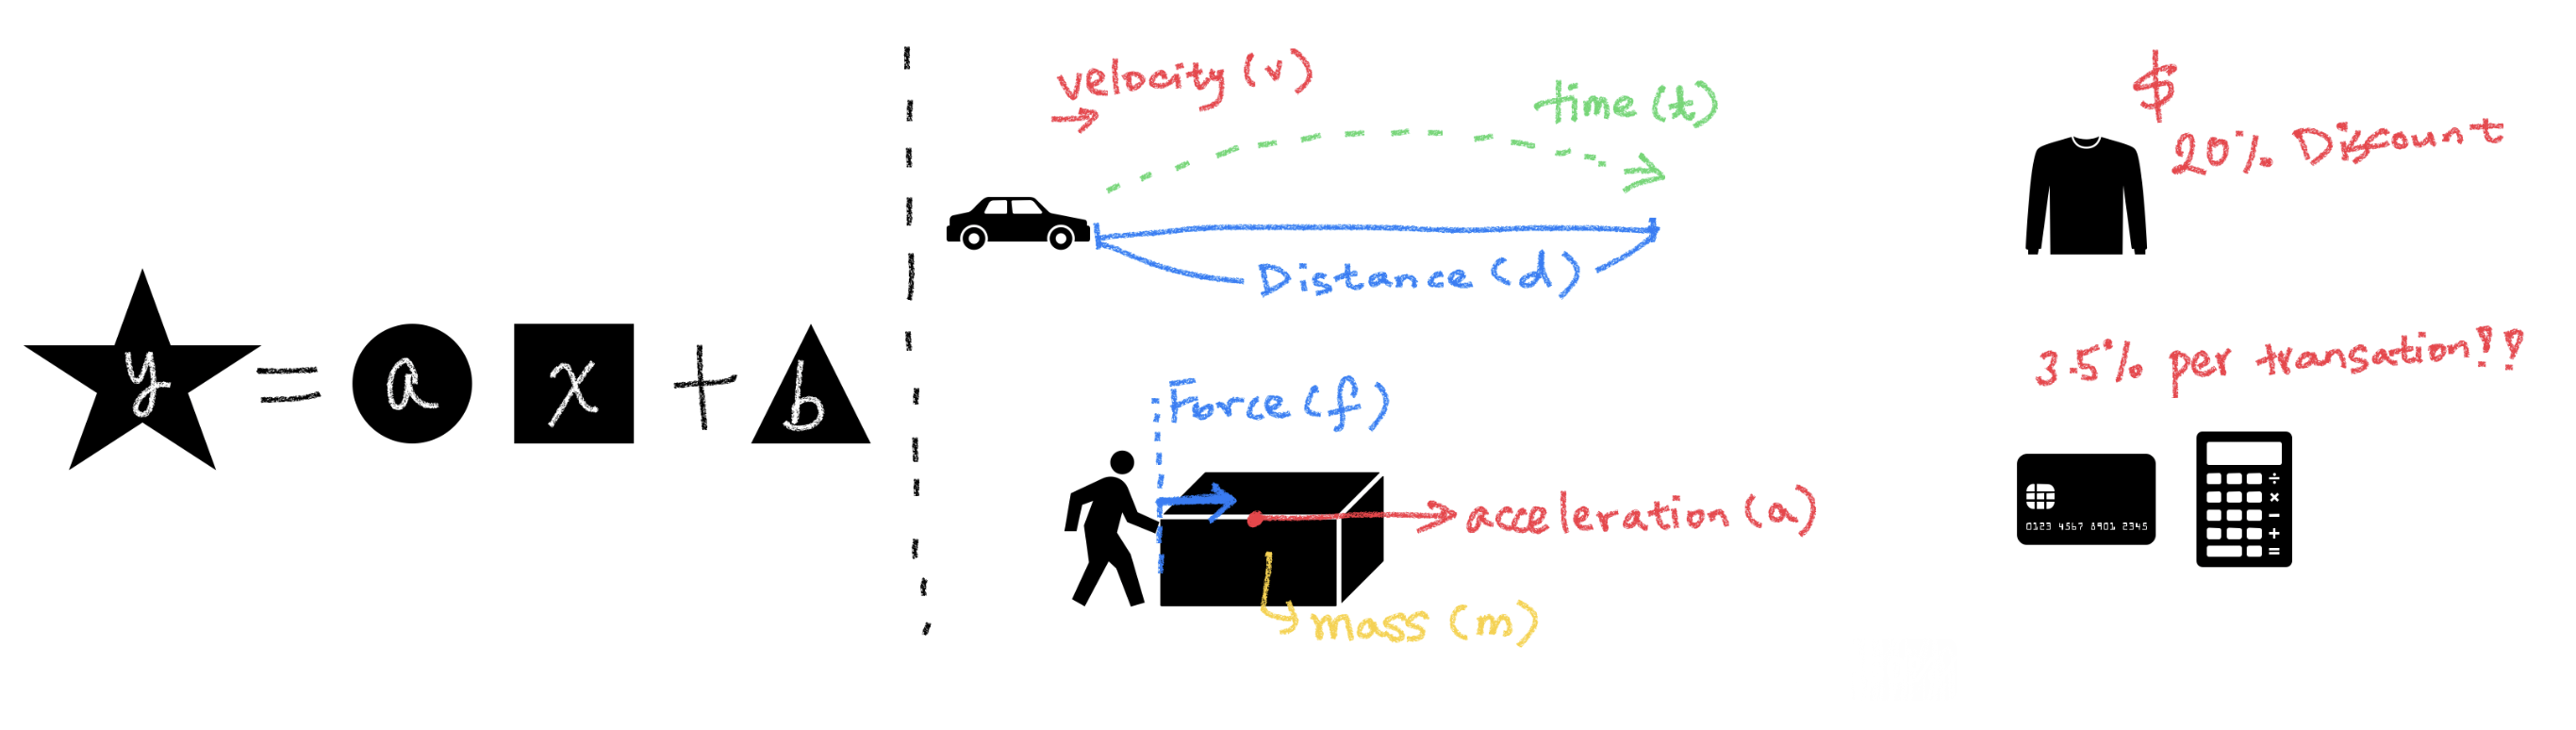 y = a x + b
velocity (v)
time (t)
Distance (d)
Force (f)
acceleration (a)
mass (m)
$
20% Discount
3.5% per transation!!
0123 4567 8901 2345
÷
×
−
+
=